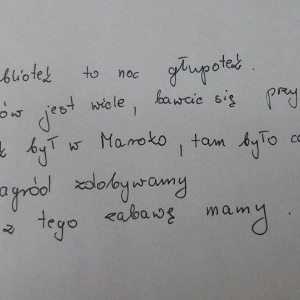 bliotek to noc głupotek.
ów jest wiele, bawcie się przy
k był w Maroko, tam było
agród zdobywamy
z tego zabawę mamy.